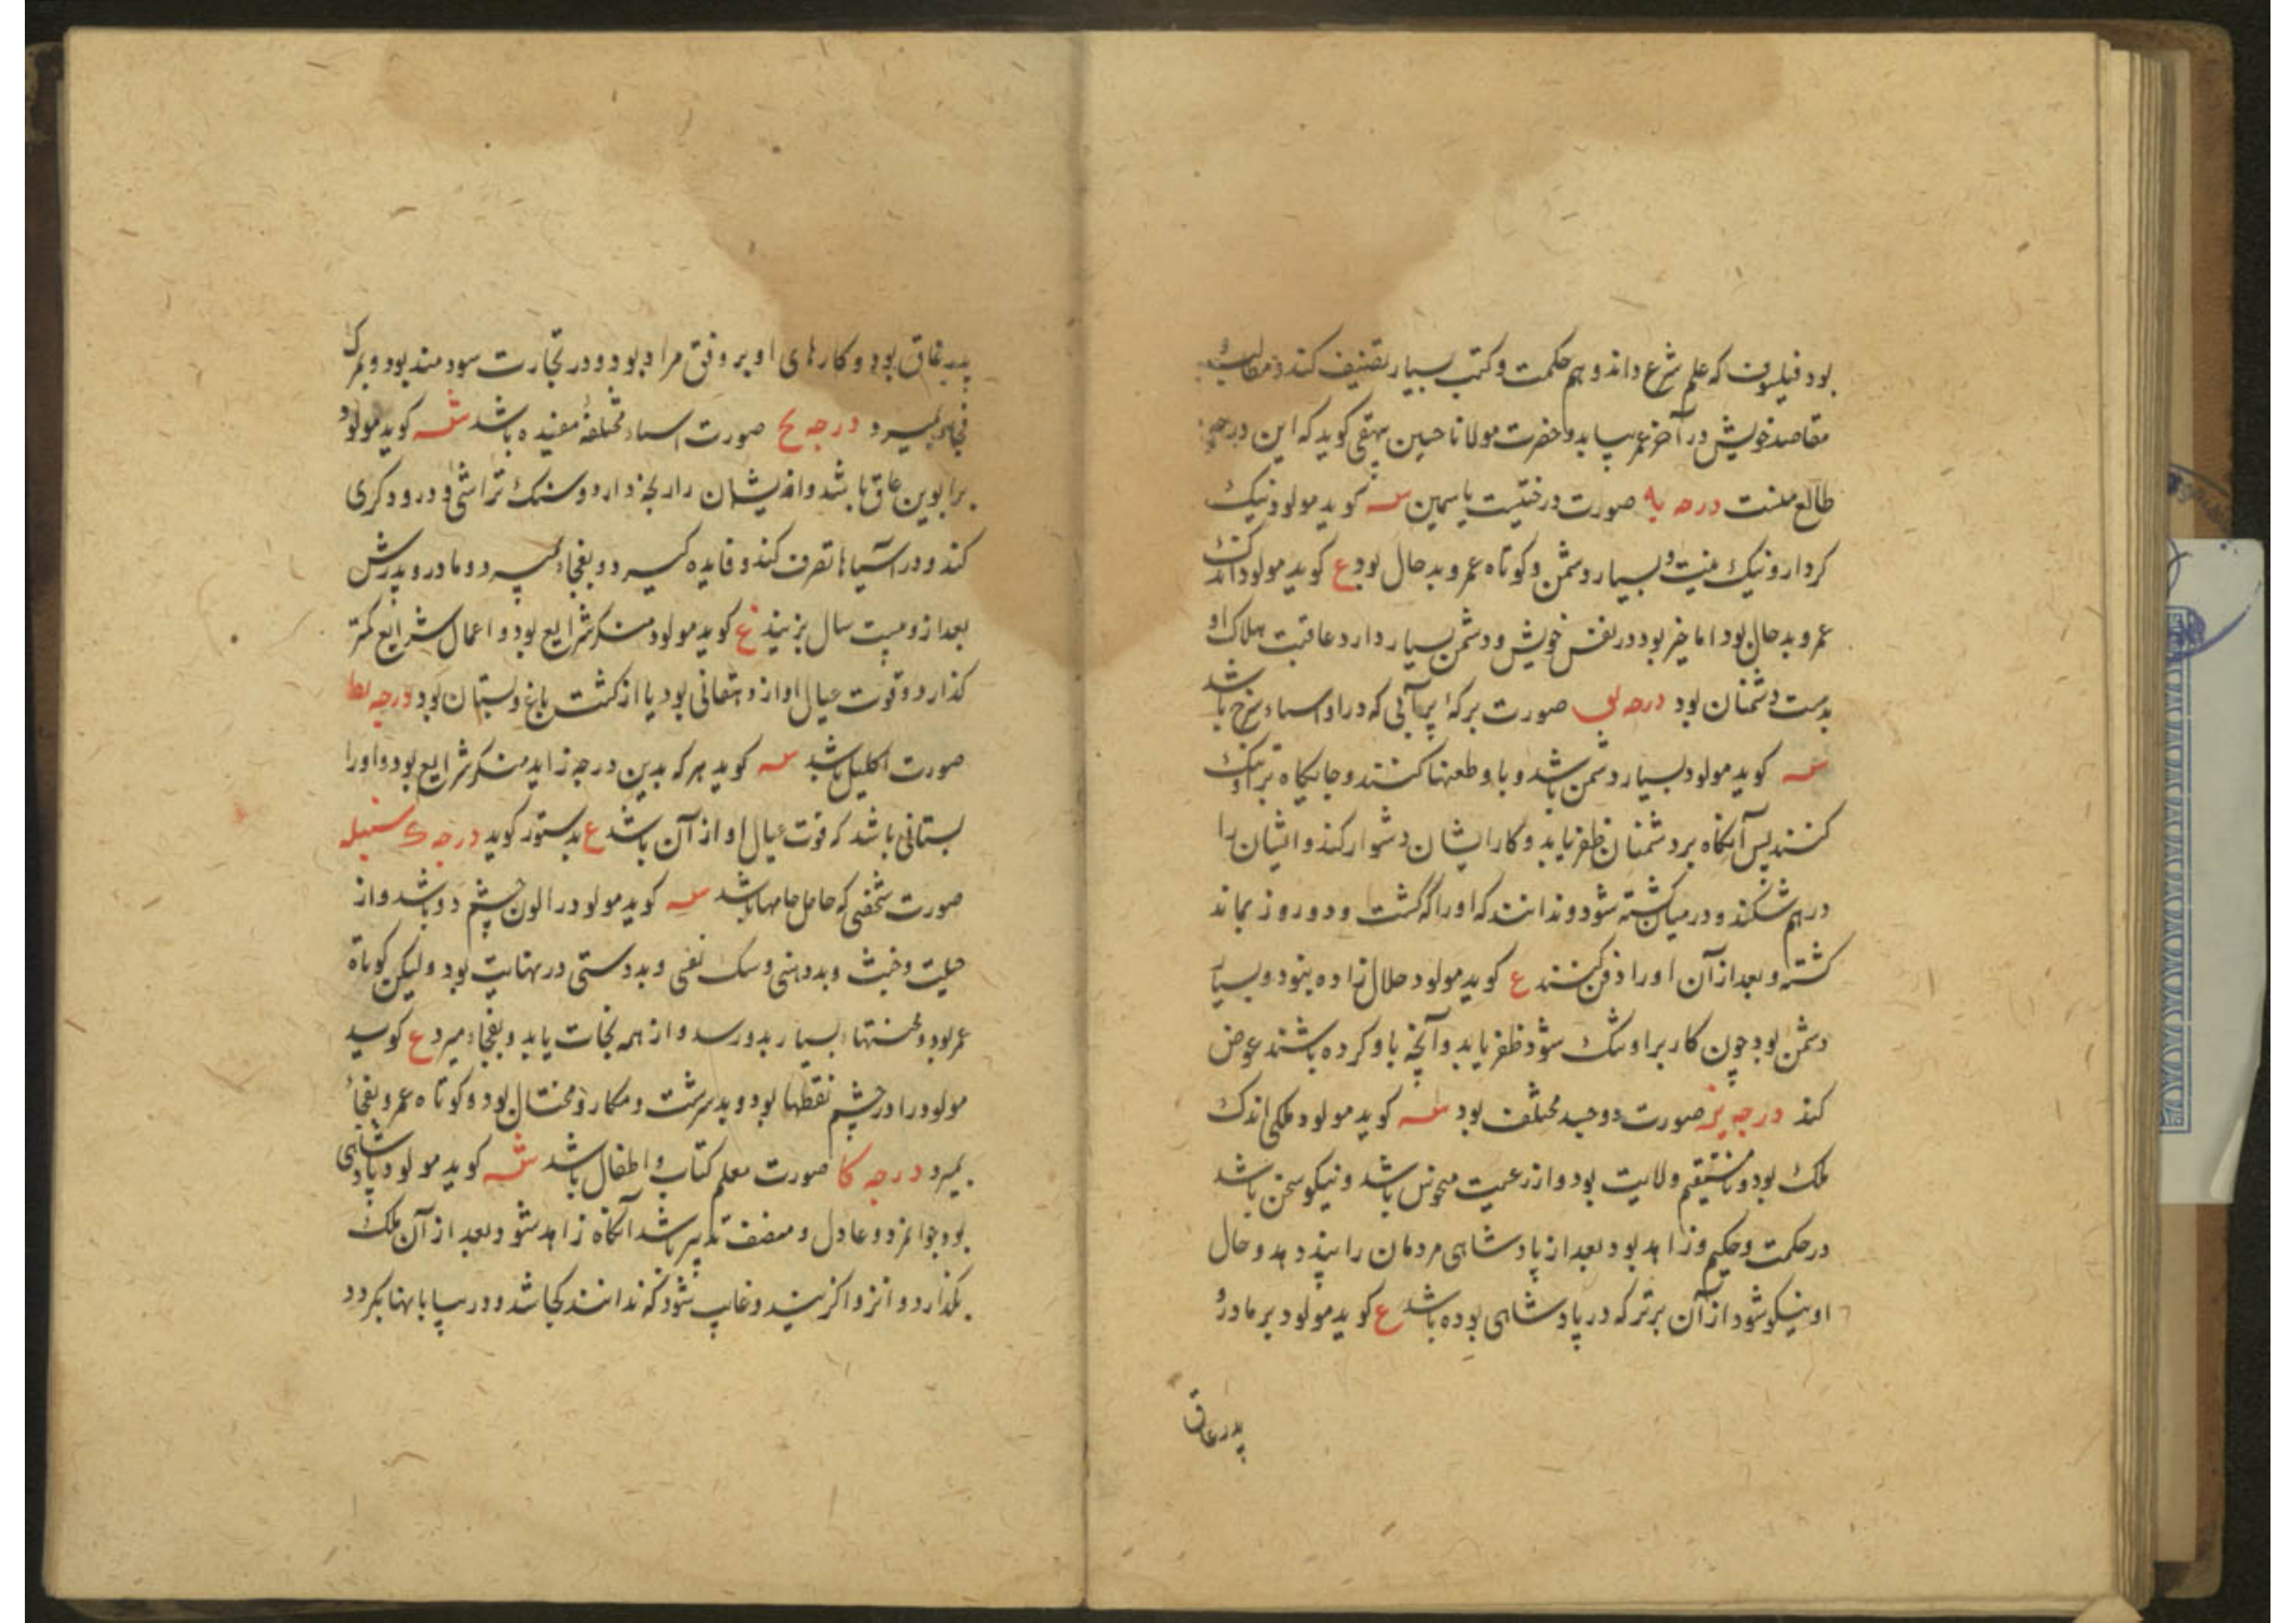 بود فیلسوف که علم شرع داند و هم حکمت و کتب بسیار تصنیف کند و مطالب و
مقاصد خویش در آخر عمر بیابد و حضرت مولانا حسین بیهقی کوید که این درجه
طالع منست درجه یه صورت درختیست یاسمین سه کوید مولود نیک
کردار و نیک بنیت و بسیار دشمن و کوتاه عمر و بدحال بود ع کوید مولود اندک
عمر و بدحال بود اما خیر بود در نفس خویش و دشمن بسیار دارد عاقبت هلاک او
بدست دشمنان بود درجه یو صورت برکهٔ پرآبی که در او اسماء سرخ باشد
سه کوید مولود بسیار دشمن باشد و با او طعنها کنند و جایکاه بر او تنک
کنند پس آنکاه بر دشمنان ظفر یابد و کار ایشان دشوار کند و ایشان را
درهم شکند و در میان کشته شود و ندانند که او را که کشت و دو روز بماند
کشته و بعد از آن او را دفن کنند ع کوید مولود حلال زاده بنود و بسیار
دشمن بود چون کار بر او تنک شود ظفر یابد و آنچه با او کرده باشند عوض
کند درجه یز صورت دو جسد مختلف بود سه کوید مولود ملکی اندک
ملک بود و نامستقیم ولایت بود و از رعیت منحوس باشد و نیکو سخن باشد
در حکمت و حکیم و زاهد بود بعد از پادشاهی مردمان را پند دهد و حال
او نیکو شود از آن برتر که در پادشاهی بوده باشد ع کوید مولود بر مادر و
پدر عاق
پدر عاق بود و کارهای او بر وفق مراد بود و در تجارت سودمند بود و بمرک
فجاه بمیرد درجه یح صورت اسماء مختلفهٔ مفیده باشد سه کوید مولود
بر ابوین عاق باشد و ایشان را رنجه دارد و سنک تراشی و درودکری
کند و در آسیاها تصرف کند و فایده کیرد و بفجاء میرد و مادر و پدرش
بعد از دویست سال بزیند ع کوید مولود منکر شرایع بود و اعمال شرایع کمتر
کذارد و قوت عیال او از دهقانی بود یا از کشت باغ و بستان بود درجه یط
صورت اکلیل باشد سه کوید هر که بدین درجه زاید منکر شرایع بود و او را
بستانی باشد که قوت عیال او از آن باشد ع بدستور کوید درجه ک سنبله
صورت شخصی که حامل جامها باشد سه کوید مولود را لون چشم دو باشد و از
حیلت و خبث و بددهنی و سک نفسی و بددستی در نهایت بود ولیکن کوتاه
عمر بود و محنتهاء بسیار بدو رسد و از همه نجات یابد و بفجاء میرد ع کوید
مولود را در چشم نقطها بود و بدسرشت و مکار و محتال بود و کوتاه عمر و بفجاء
بمیرد درجه کا صورت معلم کتاب و اطفال باشد سه کوید مولود پادشاهی
بود جوانمرد و عادل و منصف تدبیر باشد آنکاه زاهد شود و بعد از آن ملک
بکذارد و انزوا کزیند و غایب شود که ندانند کجا شد و در بیابانها بکردد